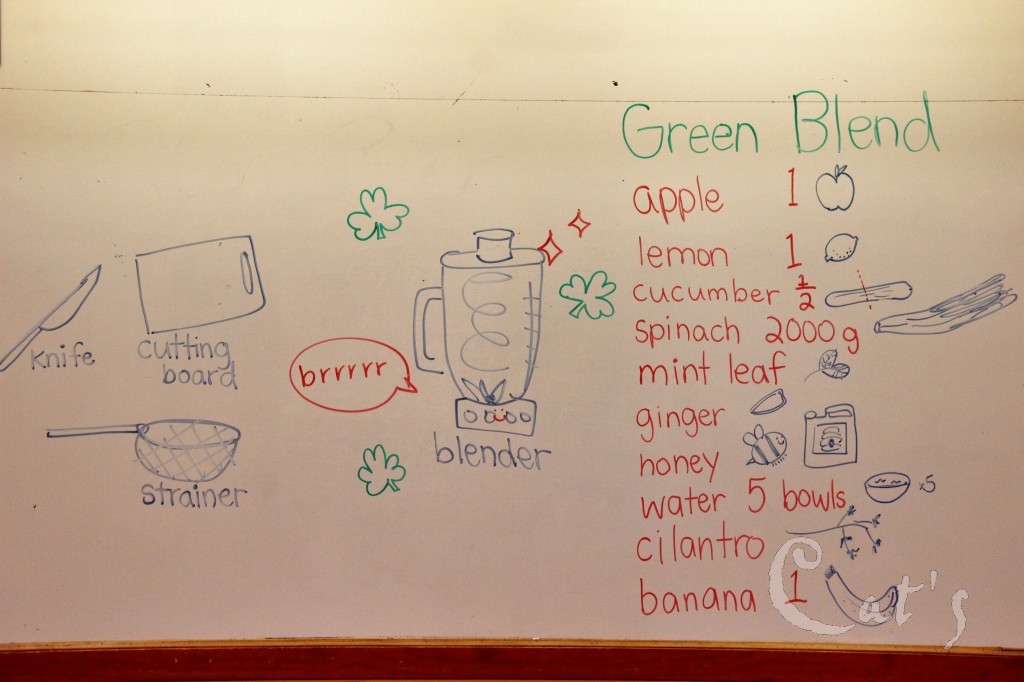 Green Blend
apple 1
lemon 1
cucumber 1/2
spinach 2000 g
mint leaf
ginger
honey
water 5 bowls x5
cilantro
banana 1
knife
cutting
board
strainer
brrrrr
blender
Cat's